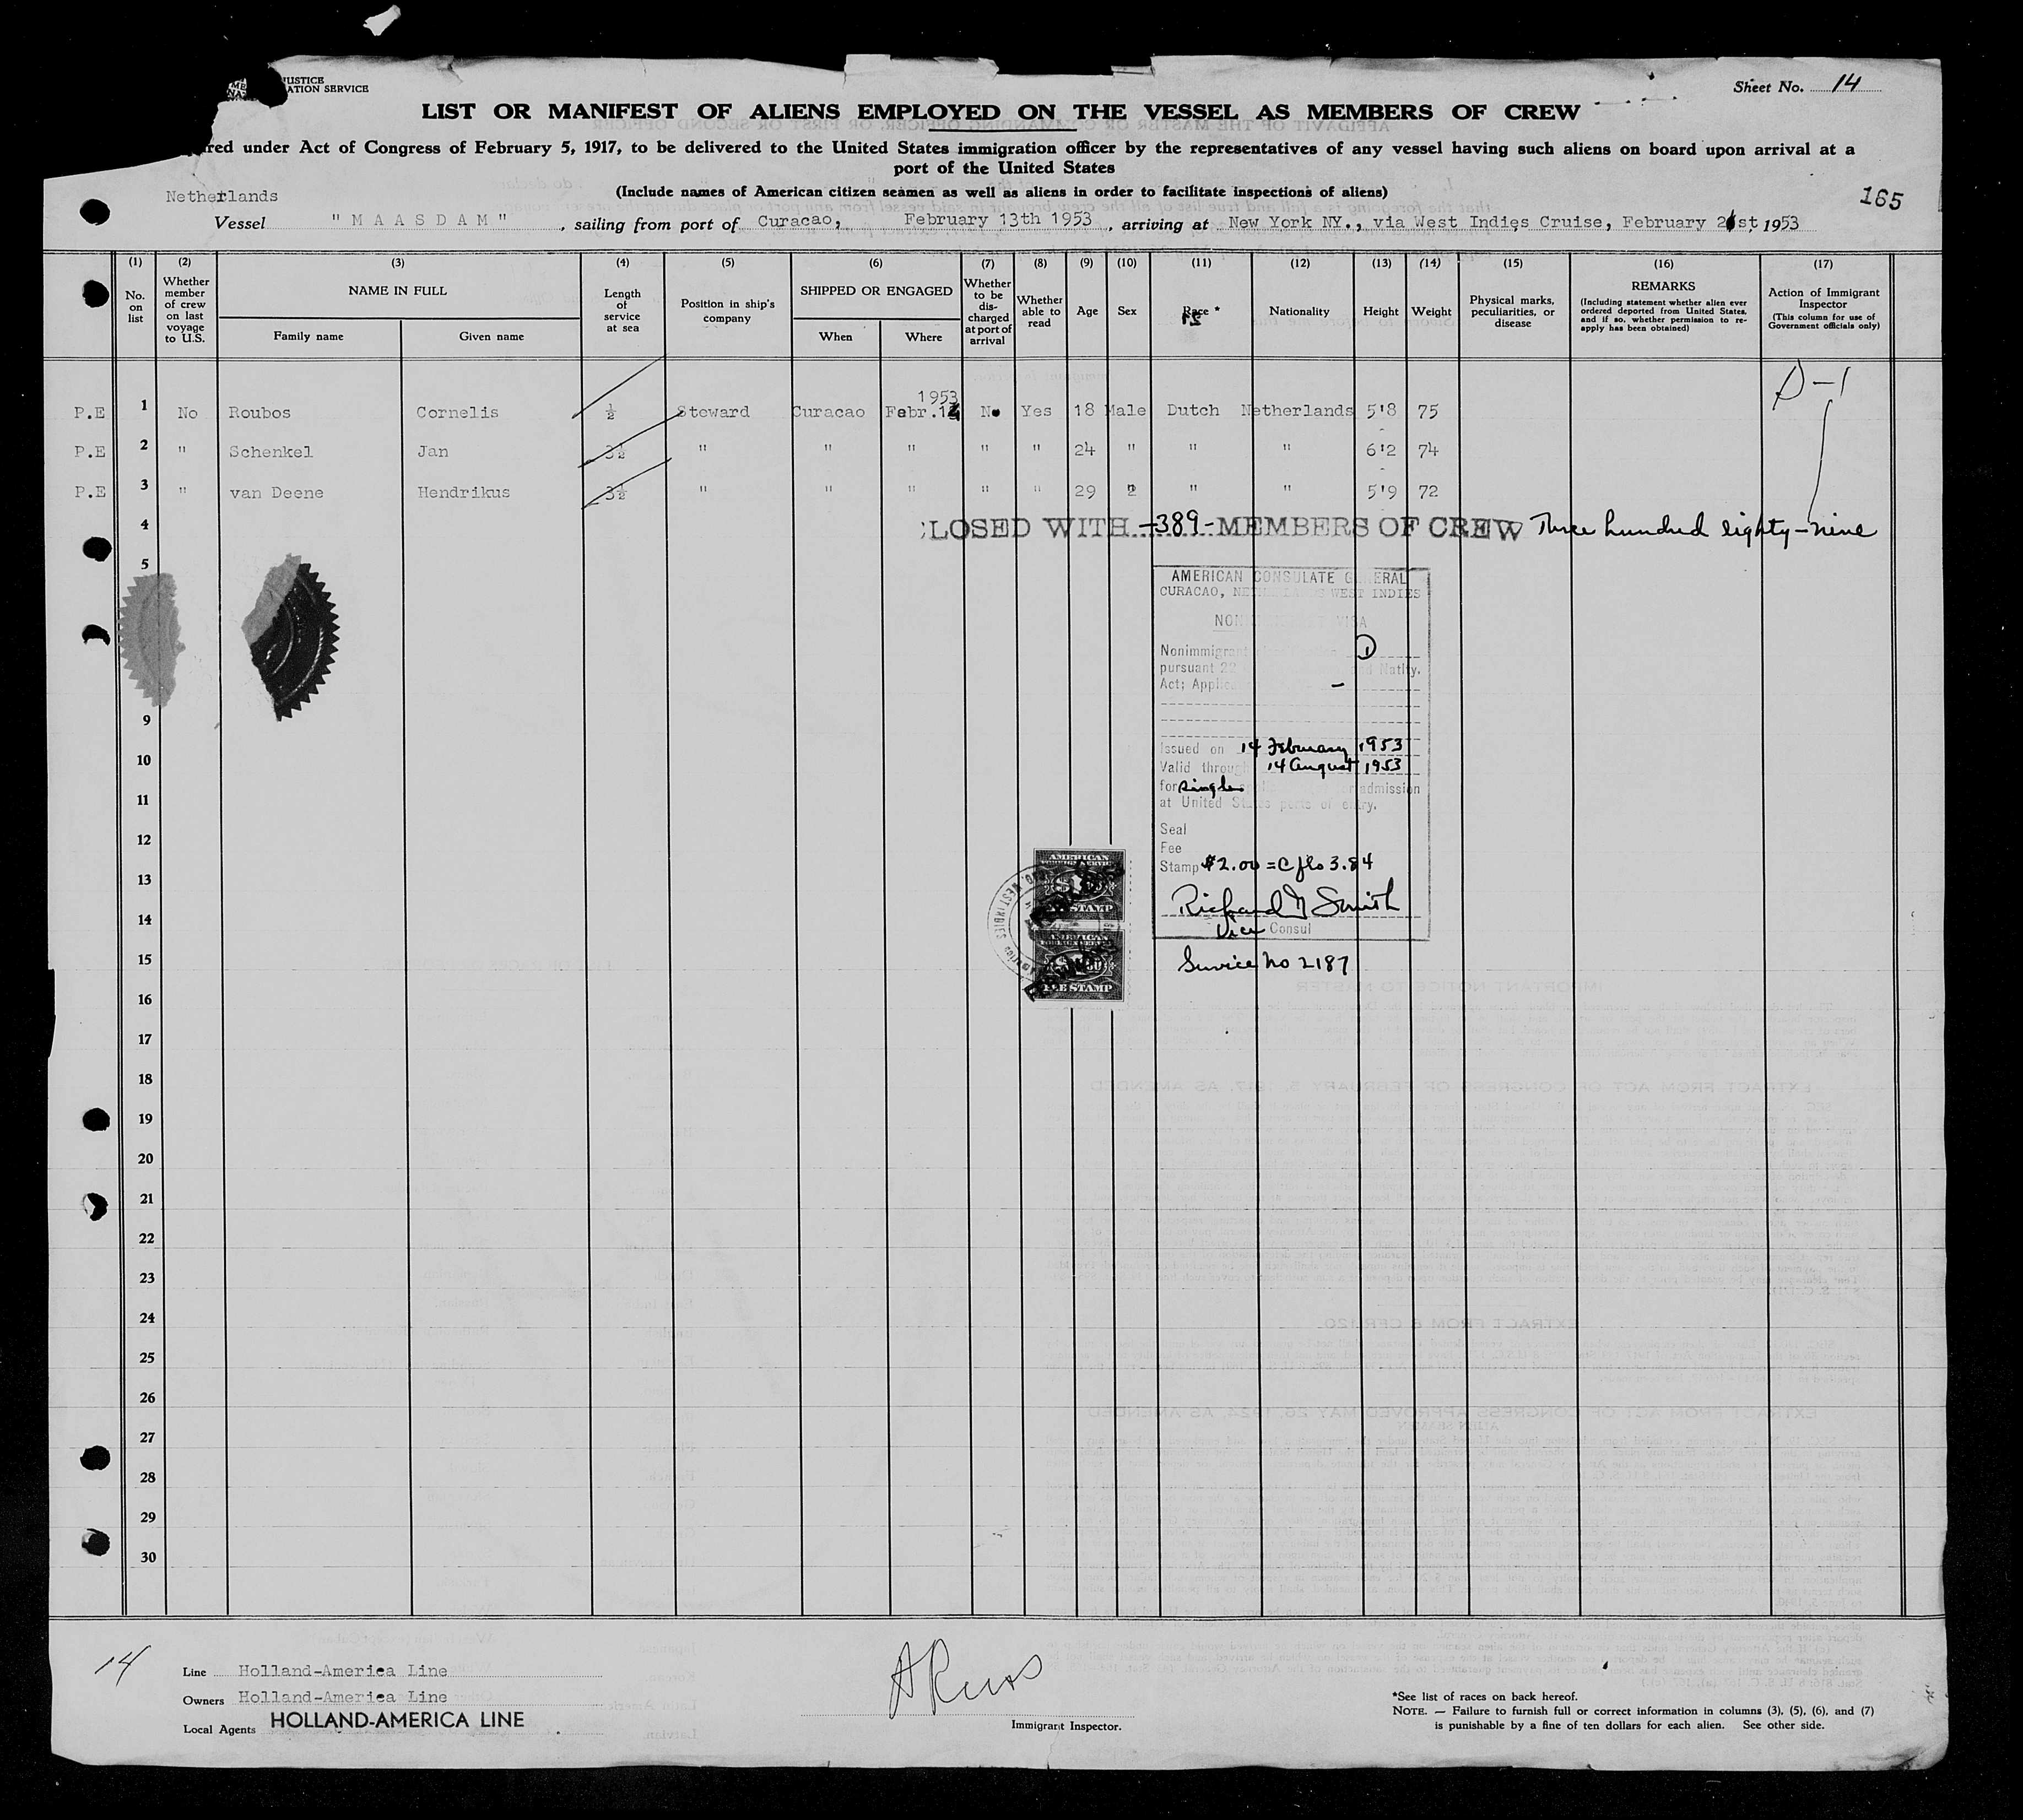 JUSTICE
ATION SERVICE
Sheet No. 14
LIST OR MANIFEST OF ALIENS EMPLOYED ON THE VESSEL AS MEMBERS OF CREW
red under Act of Congress of February 5, 1917, to be delivered to the United States immigration officer by the representatives of any vessel having such aliens on board upon arrival at a
port of the United States
(Include names of American citizen seamen as well as aliens in order to facilitate inspections of aliens)
165
Netherlands
Vessel "MAASDAM", sailing from port of Curacao, February 13th 1953, arriving at New York NY., via West Indies Cruise, February 21st 1953
(1) (2) (3) (4) (5) (6) (7) (8) (9) (10) (11) (12) (13) (14) (15) (16) (17)
No. on list
Whether member of crew on last voyage to U.S.
NAME IN FULL
Family name
Given name
Length of service at sea
Position in ship's company
SHIPPED OR ENGAGED
When
Where
Whether to be discharged at port of arrival
Whether able to read
Age
Sex
Race *
Nationality
Height
Weight
Physical marks, peculiarities, or disease
REMARKS
(Including statement whether alien ever ordered deported from United States, and if so, whether permission to re-apply has been obtained)
Action of Immigrant Inspector
(This column for use of Government officials only)
D-1
1953
P.E 1 No Roubos Cornelis ½ Steward Curacao Febr.14 No Yes 18 Male Dutch Netherlands 5'8 75
P.E 2 " Schenkel Jan 3½ " " " " " 24 " " " 6'2 74
P.E 3 " van Deene Hendrikus 3½ " " " " " 29 " " " 5'9 72
4 CLOSED WITH -389- MEMBERS OF CREW Three hundred eighty-nine
5
AMERICAN CONSULATE GENERAL
CURACAO, NETHERLANDS WEST INDIES
VISA
Nonimmigrant D
pursuant 22 Natlty.
Act;
9
Issued on 14 February 1953
10
Valid through 14 August 1953
for single admission
11
at United States ports of entry.
12
Seal
Fee
Stamp $2.00 = C fls 3.84
13
AMERICAN
FEE STAMP
Richard G Smith
14
Vice Consul
AMERICAN
FEE STAMP
WEST INDIES
15
Service No 2187
16
17
18
19
20
21
22
23
24
25
26
27
28
29
30
14
Line Holland-America Line
Owners Holland-America Line
Local Agents HOLLAND-AMERICA LINE
Immigrant Inspector.
*See list of races on back hereof.
NOTE. — Failure to furnish full or correct information in columns (3), (5), (6), and (7)
is punishable by a fine of ten dollars for each alien. See other side.